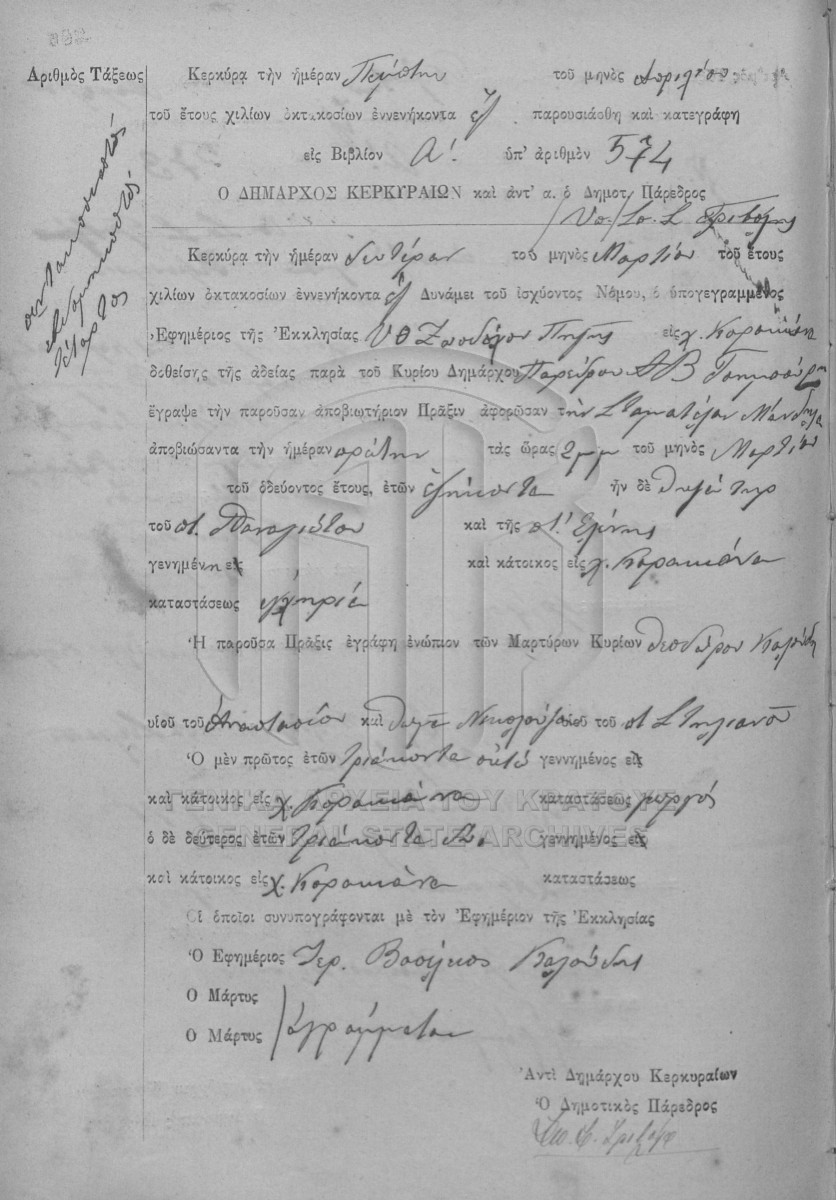 Ἀριθμὸς Τάξεως
πεντακοσιοστός
ἑβδομηκοστός
τέταρτος
Κερκύρα τὴν ἡμέραν Πέμπτην τοῦ μηνὸς Απριλίου
τοῦ ἔτους χιλίων ὀκτακοσίων ἐννενήκοντα ἕξ παρουσιάσθη καὶ κατεγράφη
εἰς Βιβλίον Α'. ὑπ' ἀριθμὸν 574
Ο ΔΗΜΑΡΧΟΣ ΚΕΡΚΥΡΑΙΩΝ καὶ ἀντ' α. ὁ Δημοτ. Πάρεδρος
Κερκύρα τὴν ἡμέραν δευτέραν τοῦ μηνὸς Μαρτίου τοῦ ἔτους
χιλίων ὀκτακοσίων ἐννενήκοντα ἕξ Δυνάμει τοῦ ἰσχύοντος Νόμου, ὁ ὑπογεγραμμένος
Ἐφημέριος τῆς Ἐκκλησίας Υ Θ Ζωοδόχου Πηγῆς εἰς χ. Κορακιάνα
δοθείσης τῆς ἀδείας παρὰ τοῦ Κυρίου Δημάρχου Παρέδρου
ἔγραψε τὴν παροῦσαν ἀποβιωτήριον Πρᾶξιν ἀφορῶσαν τὴν Σταματέλαν
ἀποβιώσαντα τὴν ἡμέραν πρώτην τὰς ὥρας 2 μμ τοῦ μηνὸς Μαρτίου
τοῦ ὁδεύοντος ἔτους, ἐτῶν ἑξήκοντα ἦν δὲ θυγάτηρ
τοῦ π. Παναγιώτου καὶ τῆς π. Ἑλένης
γενημένη εἰς καὶ κάτοικος εἰς χ. Κορακιάνα
καταστάσεως
Ἡ παροῦσα Πρᾶξις ἐγράφη ἐνώπιον τῶν Μαρτύρων Κυρίων Θεοδώρου Καλούδη
υἱοῦ τοῦ Ἀναστασίου καὶ υἱοῦ τοῦ π. Στυλιανοῦ
Ὁ μὲν πρῶτος ἐτῶν τριάκοντα ὀκτώ γεννημένος εἰς
καὶ κάτοικος εἰς χ. Κορακιάνα καταστάσεως
ὁ δὲ δεύτερος ἐτῶν τριάκοντα γεννημένος εἰς
καὶ κάτοικος εἰς χ. Κορακιάνα καταστάσεως
Οἱ ὁποῖοι συνυπογράφονται μὲ τὸν Ἐφημέριον τῆς Ἐκκλησίας
Ὁ Ἐφημέριος Ἱερ. Βασίλειος Καλούδης
Ο Μάρτυς
Ο Μάρτυς ἀγράμματοι
Ἀντὶ Δημάρχου Κερκυραίων
Ὁ Δημοτικὸς Πάρεδρος
ΓΕΝΙΚΑ ΑΡΧΕΙΑ ΤΟΥ ΚΡΑΤΟΥΣ
GENERAL STATE ARCHIVES